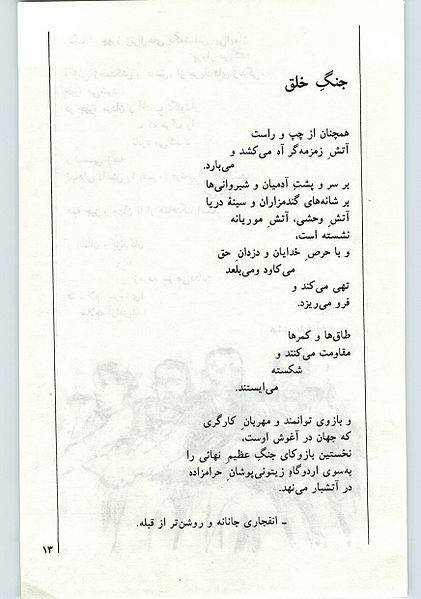 جنگِ خلق
همچنان از چپ و راست
آتشِ زمزمه‌گر آه می‌کشد و
می‌بارد.
بر سر و پشتِ آدمیان و شیروانی‌ها
بر شانه‌های گندمزاران و سینهٔ دریا
آتشِ وحشی، آتشِ موریانه
نشسته است،
و با حرصِ خدایان و دزدانِ حق
می‌کاود ومی‌بلعد
تهی می‌کند و
فرو می‌ریزد.
طاق‌ها و کمرها
مقاومت می‌کنند و
شکسته
می‌ایستند.
و بازوی توانمند و مهربانِ کارگری
که جهان در آغوش اوست،
نخستین بازوکای جنگِ عظیمِ نهائی را
به‌سوی اردوگاهِ زیتونی‌پوشانِ حرامزاده
در آتشبار می‌نهد.
ـ انفجاری جانانه و روشن‌تر از قبله.
۱۳